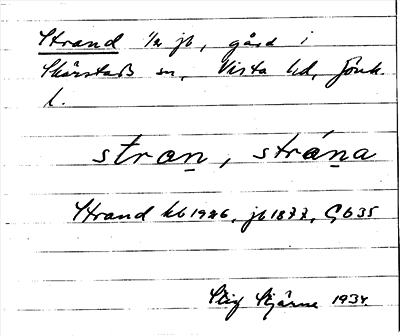 Strand 1/2 jb, gård i
Skärstads sn, Vista hd, Jönk.
l.
stran, strána
Strand kb 1926, jb 1877, Gb 35
Stig Stjärne 1934.